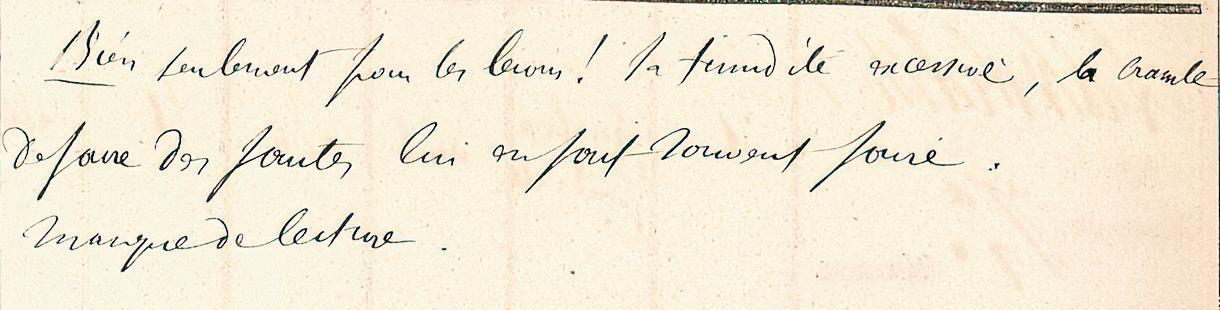 Bien seulement pour les leçons ! Sa timidité excessive, la crainte
de faire des fautes lui en font souvent faire.
Manque de lecture.